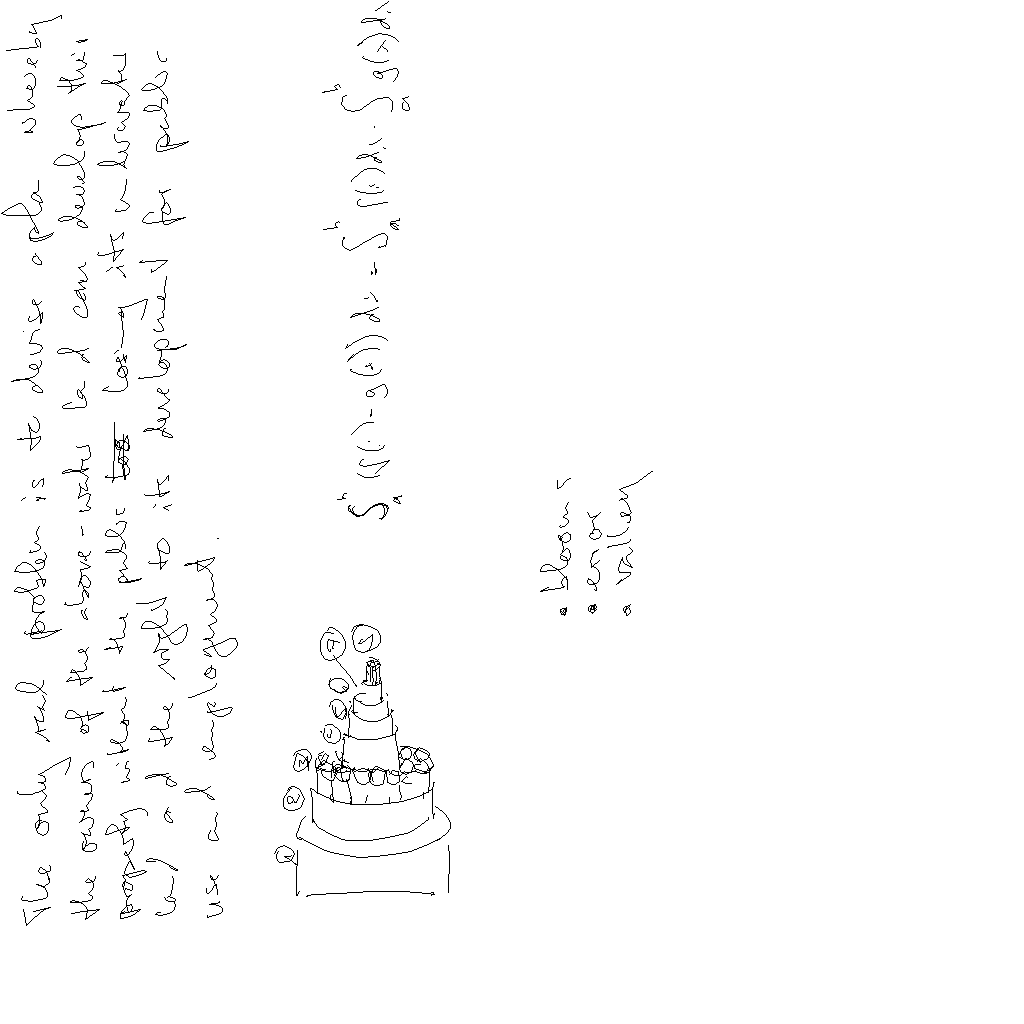 The only real problem is to devise a pla whereby
the owner of the above-water land can develop this
property without the public losing its underwater
land and the right to its development for public
use and enjoyment.
∫_a^b (f(x) - g(x)) dx = ∫_a^b f(x) dx - ∫_a^b g(x) dx
2
3
4
5
• bloom
• error
• valley